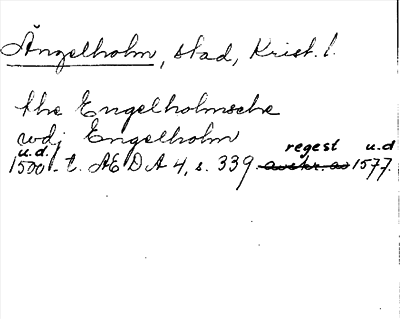 Ängelholm, stad, Krist. l.
the Engelholmsche
udj Engelholm
u.d. regest u.d
1500-t. ÆDA 4, s. 339. avskr. av 1577.